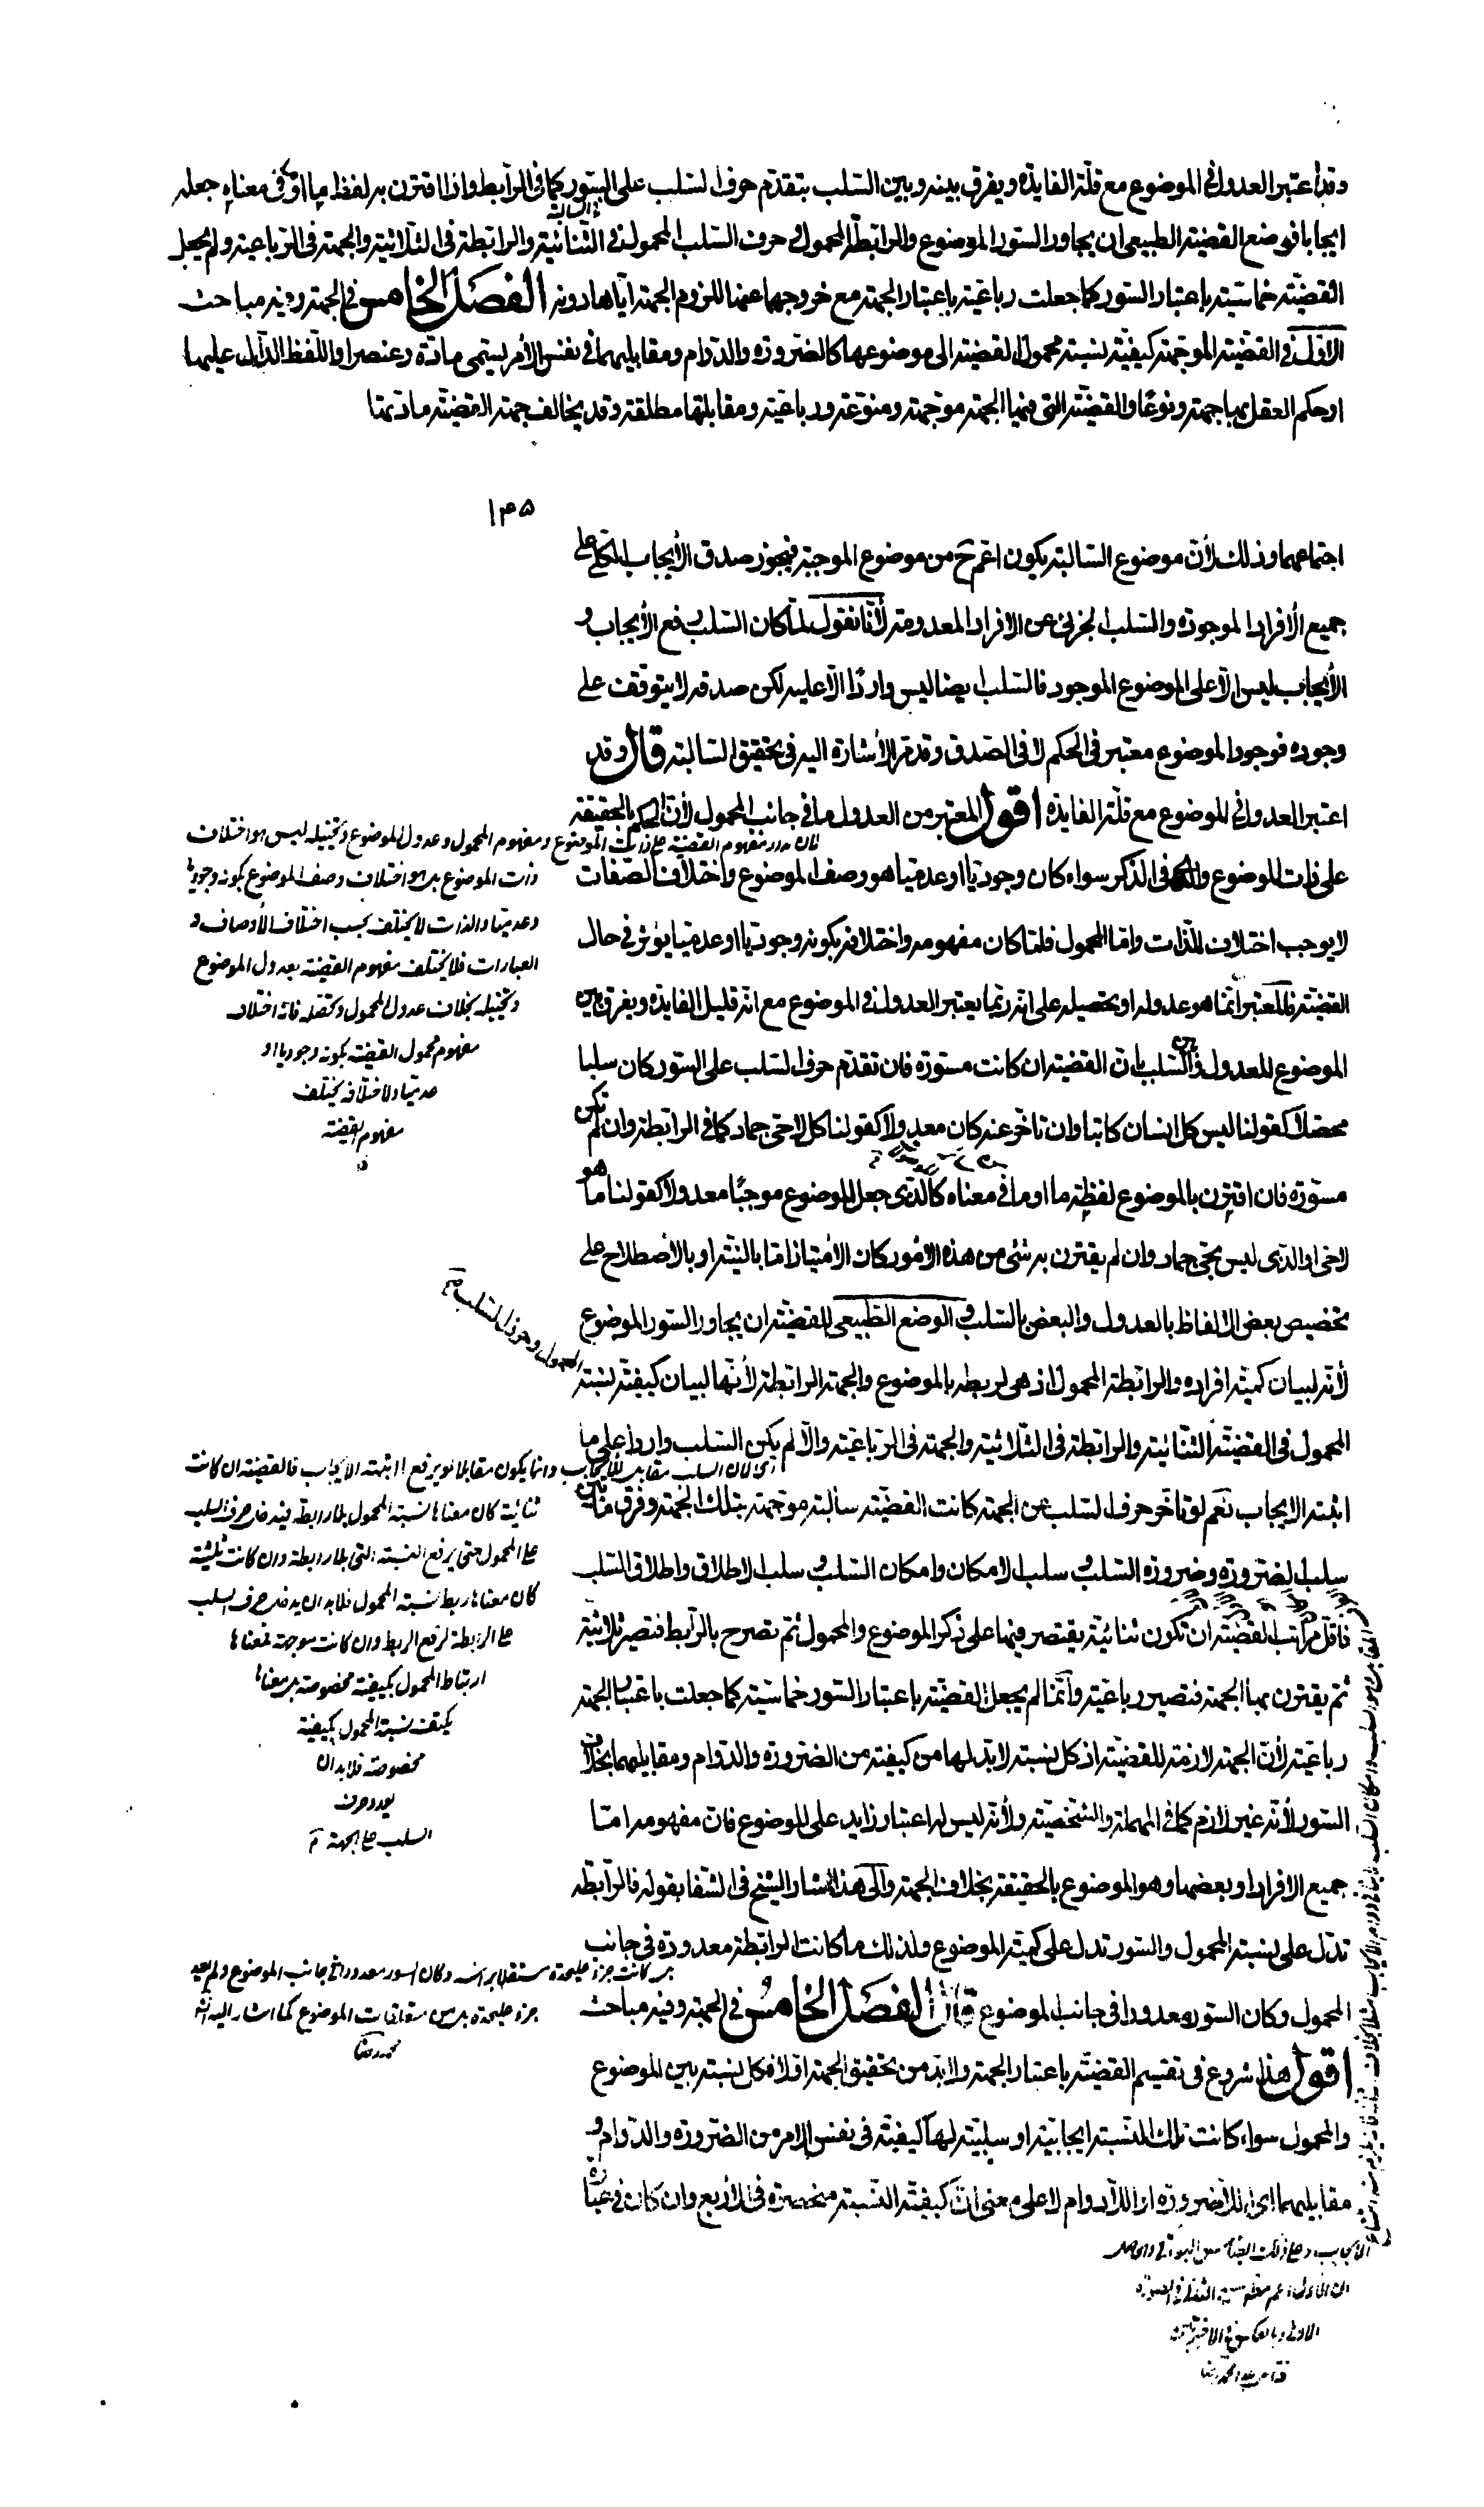 وقد اعتبر العدول فى الموضوع مع قلة الفايدة ويفرق بينه وبين السلب بتقدم حرف السلب على السور كما فى الرابط واذا اقترن به لفظ ما او فى معناه جعله
ايجابا فوضع القضية الطبيعى ان يجاور السور الموضوع والرابطة المحمول وحرف السلب المحمول فى الثنائية والرابطة فى الثلاثية والجهة فى الرباعية ولم يجعل
السالبة
القضية خماسية باعتبار السور كما جعلت رباعية باعتبار الجهة مع خروجهما عنها للزوم الجهة اياها دونه الفصل الخامس فى الجهة وفيه مباحث
الاول فى القضية الموجهة كيفية نسبة محمول القضية الى موضوعها كالضرورة والدوام ومقابليهما فى نفس الأمر يسمى مادة وعنصرا واللفظ الدال عليها
او حكم العقل بها جهة ونوعًا والقضية التى فيها الجهة موجهة ومنوعة ورباعية ومقابلتها مطلقة وقد يخالف جهة القضية مادتها
١٣٥
اجتماعهما وذلك لأن موضوع السالبة يكون اعم ح من موضوع الموجبة فيجوز صدق الأيجاب الكلى على
جميع الأفراد الموجودة والسلب الجزئى عن الافراد المعدومة لأنا نقول لما كان السلب رفع الأيجاب و
الأيجاب ليس الا على الموضوع الموجود فالسلب ايضا ليس واردًا الا عليه لكن صدقه لا يتوقف على
وجوده فوجود الموضوع معتبر فى الحكم لا فى الصدق وقد مر الأشارة اليه فى تحقيق السالبة قال وقد
اعتبر العدول فى الموضوع مع قلة الفايدة اقول المعتبر من العدول ما فى جانب المحمول لأن الحكم بالحقيقة
على ذات الموضوع و فى الذكر سواء كان وجوديا او عدميا هو وصف الموضوع واختلاف الصفات
لا يوجب اختلاف الذات واما المحمول فلما كان مفهومه واختلافه بكونه وجوديا او عدميا يؤثر فى حال
القضية فالمعتبر انما هو عدوله او تحصيله على انه ربما يعتبر العدول فى الموضوع مع انه قليل الفايدة ويفرق بين
الموضوع المعدول و بين السلب بان القضية ان كانت مسورة فان تقدم حرف السلب على السور كان سلبا
محصلا كقولنا ليس كل انسان كاتبا وان تأخر عنه كان معدولا كقولنا كل لا حى جماد كما فى الرابطة وان لم تكن
مسورة فان اقترن بالموضوع لفظة ما او ما فى معناه كالذى جعل الموضوع موجبًا معدولا كقولنا ما هو
لا حى او الذى ليس بحى جماد وان لم يقترن به شئ من هذه الامور كان الأمتياز اما بالنية او بالأصطلاح على
تخصيص بعض الالفاظ بالعدول والبعض بالسلب و الوضع الطبيعى للقضية ان يجاور السور الموضوع
لأنه لبيان كمية افراده والرابطة المحمول اذ هى لربطه بالموضوع والجهة الرابطة لأنها لبيان كيفية نسبة
المحمول وحرف السلب
المحمول فى القضية الثنائية والرابطة فى الثلاثية والجهة فى الرباعية والا لم يكن السلب واردا على ما
اثبته الايجاب نعم لو تأخر حرف السلب عن الجهة كانت القضية سالبة موجهة بتلك الجهة وفرق ما بين
سلب الضرورة وضرورة السلب و سلب الامكان وامكان السلب و سلب الاطلاق واطلاق السلب
فاقل مراتب القضية ان تكون ثنائية يقتصر فيها على ذكر الموضوع والمحمول ثم تصرح بالرابط فتصير ثلاثية
ثم يقترن بها الجهة فتصير رباعية وانما لم يجعل القضية باعتبار السور خماسية كما جعلت باعتبار الجهة
رباعية لأن الجهة لازمة للقضية اذ كل نسبة لا بد لها من كيفية من الضرورة والدوام ومقابليهما بخلاف
السور لأنه غير لازم كما فى المهملة والشخصية ولأنه ليس له اعتبار زايد على الموضوع فان مفهومه اما
جميع الافراد او بعضها وهو الموضوع بالحقيقة بخلاف الجهة والى هذا اشار الشيخ فى الشفا بقوله فالرابطة
تدل على نسبة المحمول والسور تدل على كمية الموضوع ولذلك ما كانت الرابطة معدودة فى جانب
المحمول وكان السور معدودا فى جانب الموضوع قال الفصل الخامس فى الجهة وفيه مباحث
اقول هذا شروع فى تقسيم القضية باعتبار الجهة ولا بد من تحقيق الجهة اولا فكل نسبة بين الموضوع
والمحمول سواء كانت تلك النسبة ايجابية او سلبية لها كيفية فى نفس الامر من الضرورة والدوام و
مقابليهما اى اللاضرورة او اللادوام لا على معنى ان كيفية النسبة منحصرة فى الأربع وان كان فى عبارة
مفهوم القضية ذات الموضوع ومفهوم المحمول وعدول الموضوع وتحصيله ليس هو اختلاف
ذات الموضوع بل هو اختلاف وصف الموضوع بكونه وجوديا
وعدميا والذات لا يختلف بحسب اختلاف الأوصاف و
العبارات فلا يختلف مفهوم القضية بعدول الموضوع
وتحصيله بخلاف عدول المحمول وتحصله فانه اختلاف
مفهوم محمول القضية بكونه وجوديا او
عدميا ولاختلافه يختلف
مفهوم القضية
اى لان السلب مقابل للايجاب وانما يكون مقابلا لو يرفع ما اثبته الايجاب فالقضية ان كانت
ثنائية كان معناها نسبة المحمول بلا رابطة فيدخل حرف السلب
على المحمول حتى يرفع النسبة التى بلا رابطة وان كانت ثلثية
كان معناها ربط نسبة المحمول فلا بد ان يدخل حرف السلب
على الرابطة لرفع الربط وان كانت موجهة فمعناها
ارتباط المحمول بكيفية مخصوصة بل معناها
يكيف نسبة المحمول بكيفية
مخصوصة فلا بد ان
يورد حرف
السلب على الجهة
بل كانت جزء عليحدة مستقلا برأسه وكان السور معدودا فى جانب الموضوع ولم يعد
جزء عليحدة بل من متعلقات الموضوع كما اشار اليه
محمد رضا